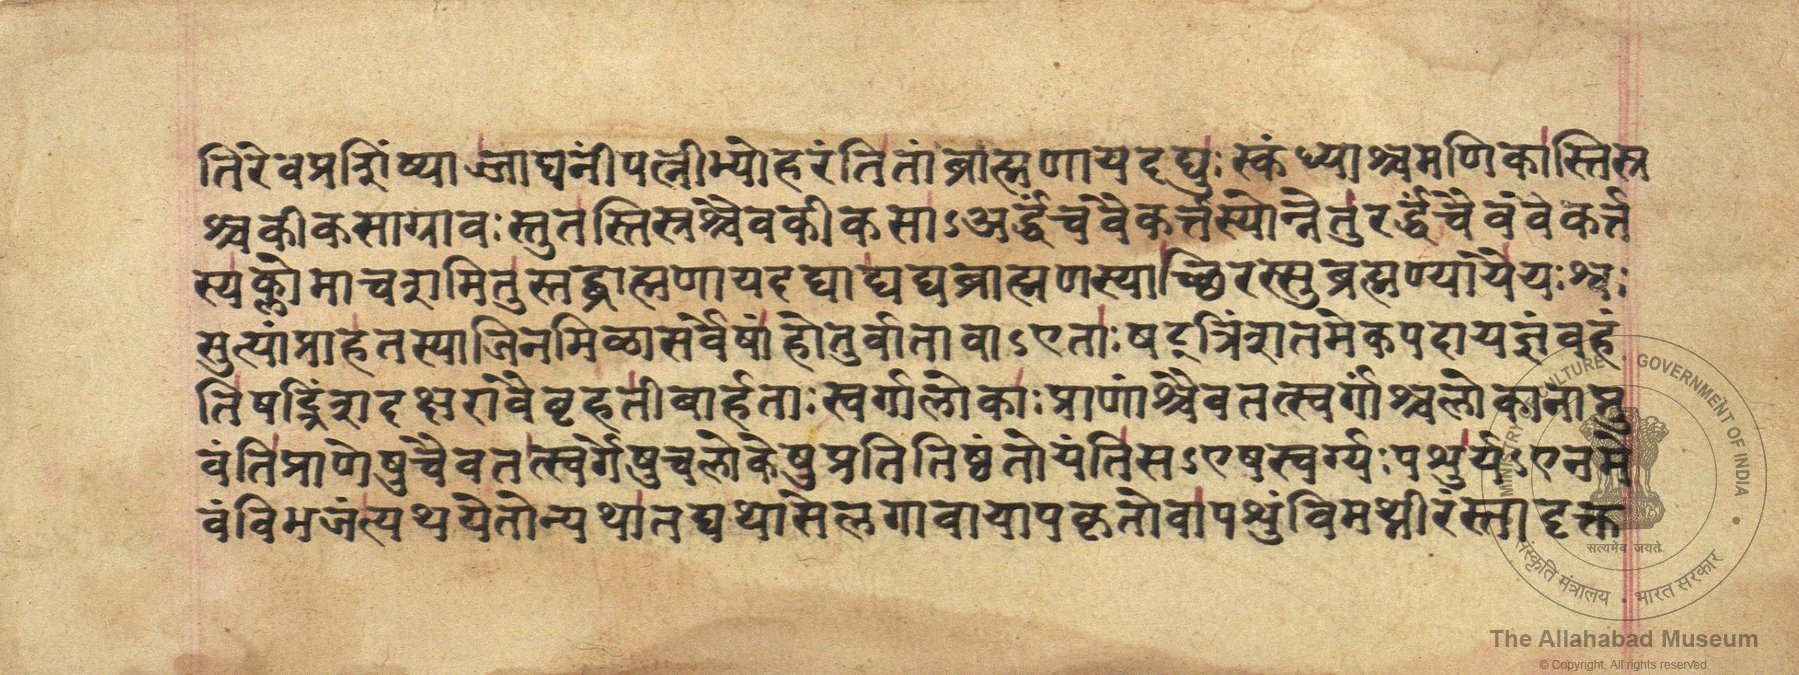 तिरेवप्रशिंष्याज्जाघनींपत्नीभ्योहरंतितांब्राह्मणायदद्युः स्कंध्याश्चमणिकास्तिस्र
श्चकीकसाग्रावः स्तुतस्तिस्रश्चैवकीकसाऽअर्द्धंचवैकर्त्तस्योन्नेतुरर्द्धंचैवंवैकर्त्त
स्यक्लोमाचशमितुस्तद्ब्राह्मणायदद्याद्यद्यब्राह्मणस्याच्छिरस्सुब्रह्मण्यायैयः श्वः
सुत्यांप्राहतस्याजिनमिळासर्वेषांहोतुर्वातावाऽएताः षट्त्रिंशतमेकपदायज्ञंवहं
तिषट्त्रिंशदक्षरावैबृहतीबार्हताः स्वर्गालोकाः प्राणांश्चैवतत्स्वर्गांश्चलोकानाप्नु
वंतिप्राणेषुचैवतत्स्वर्गेषुचलोकेषुप्रतितिष्ठंतोयंतिसऽएषस्वर्ग्यः पशुर्यऽएनमे
वंविभजंत्यथयेतोन्यथातद्यथासेलगावायापकृतोवापशुंविमथ्नीरंस्तादृक्त
सत्यमेव जयते
MINISTRY OF CULTURE • GOVERNMENT OF INDIA
संस्कृति मंत्रालय • भारत सरकार
The Allahabad Museum
© Copyright, All rights reserved.